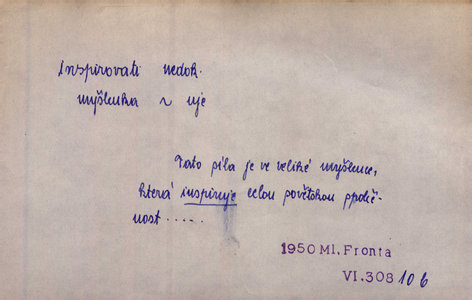 Inspirovati nedok.
myšlenka ~ uje
Tato síla je ve veliké myšlence,
která inspiruje celou sovětskou společ-
nost.....
1950 Ml. Fronta
VI. 308 10 6